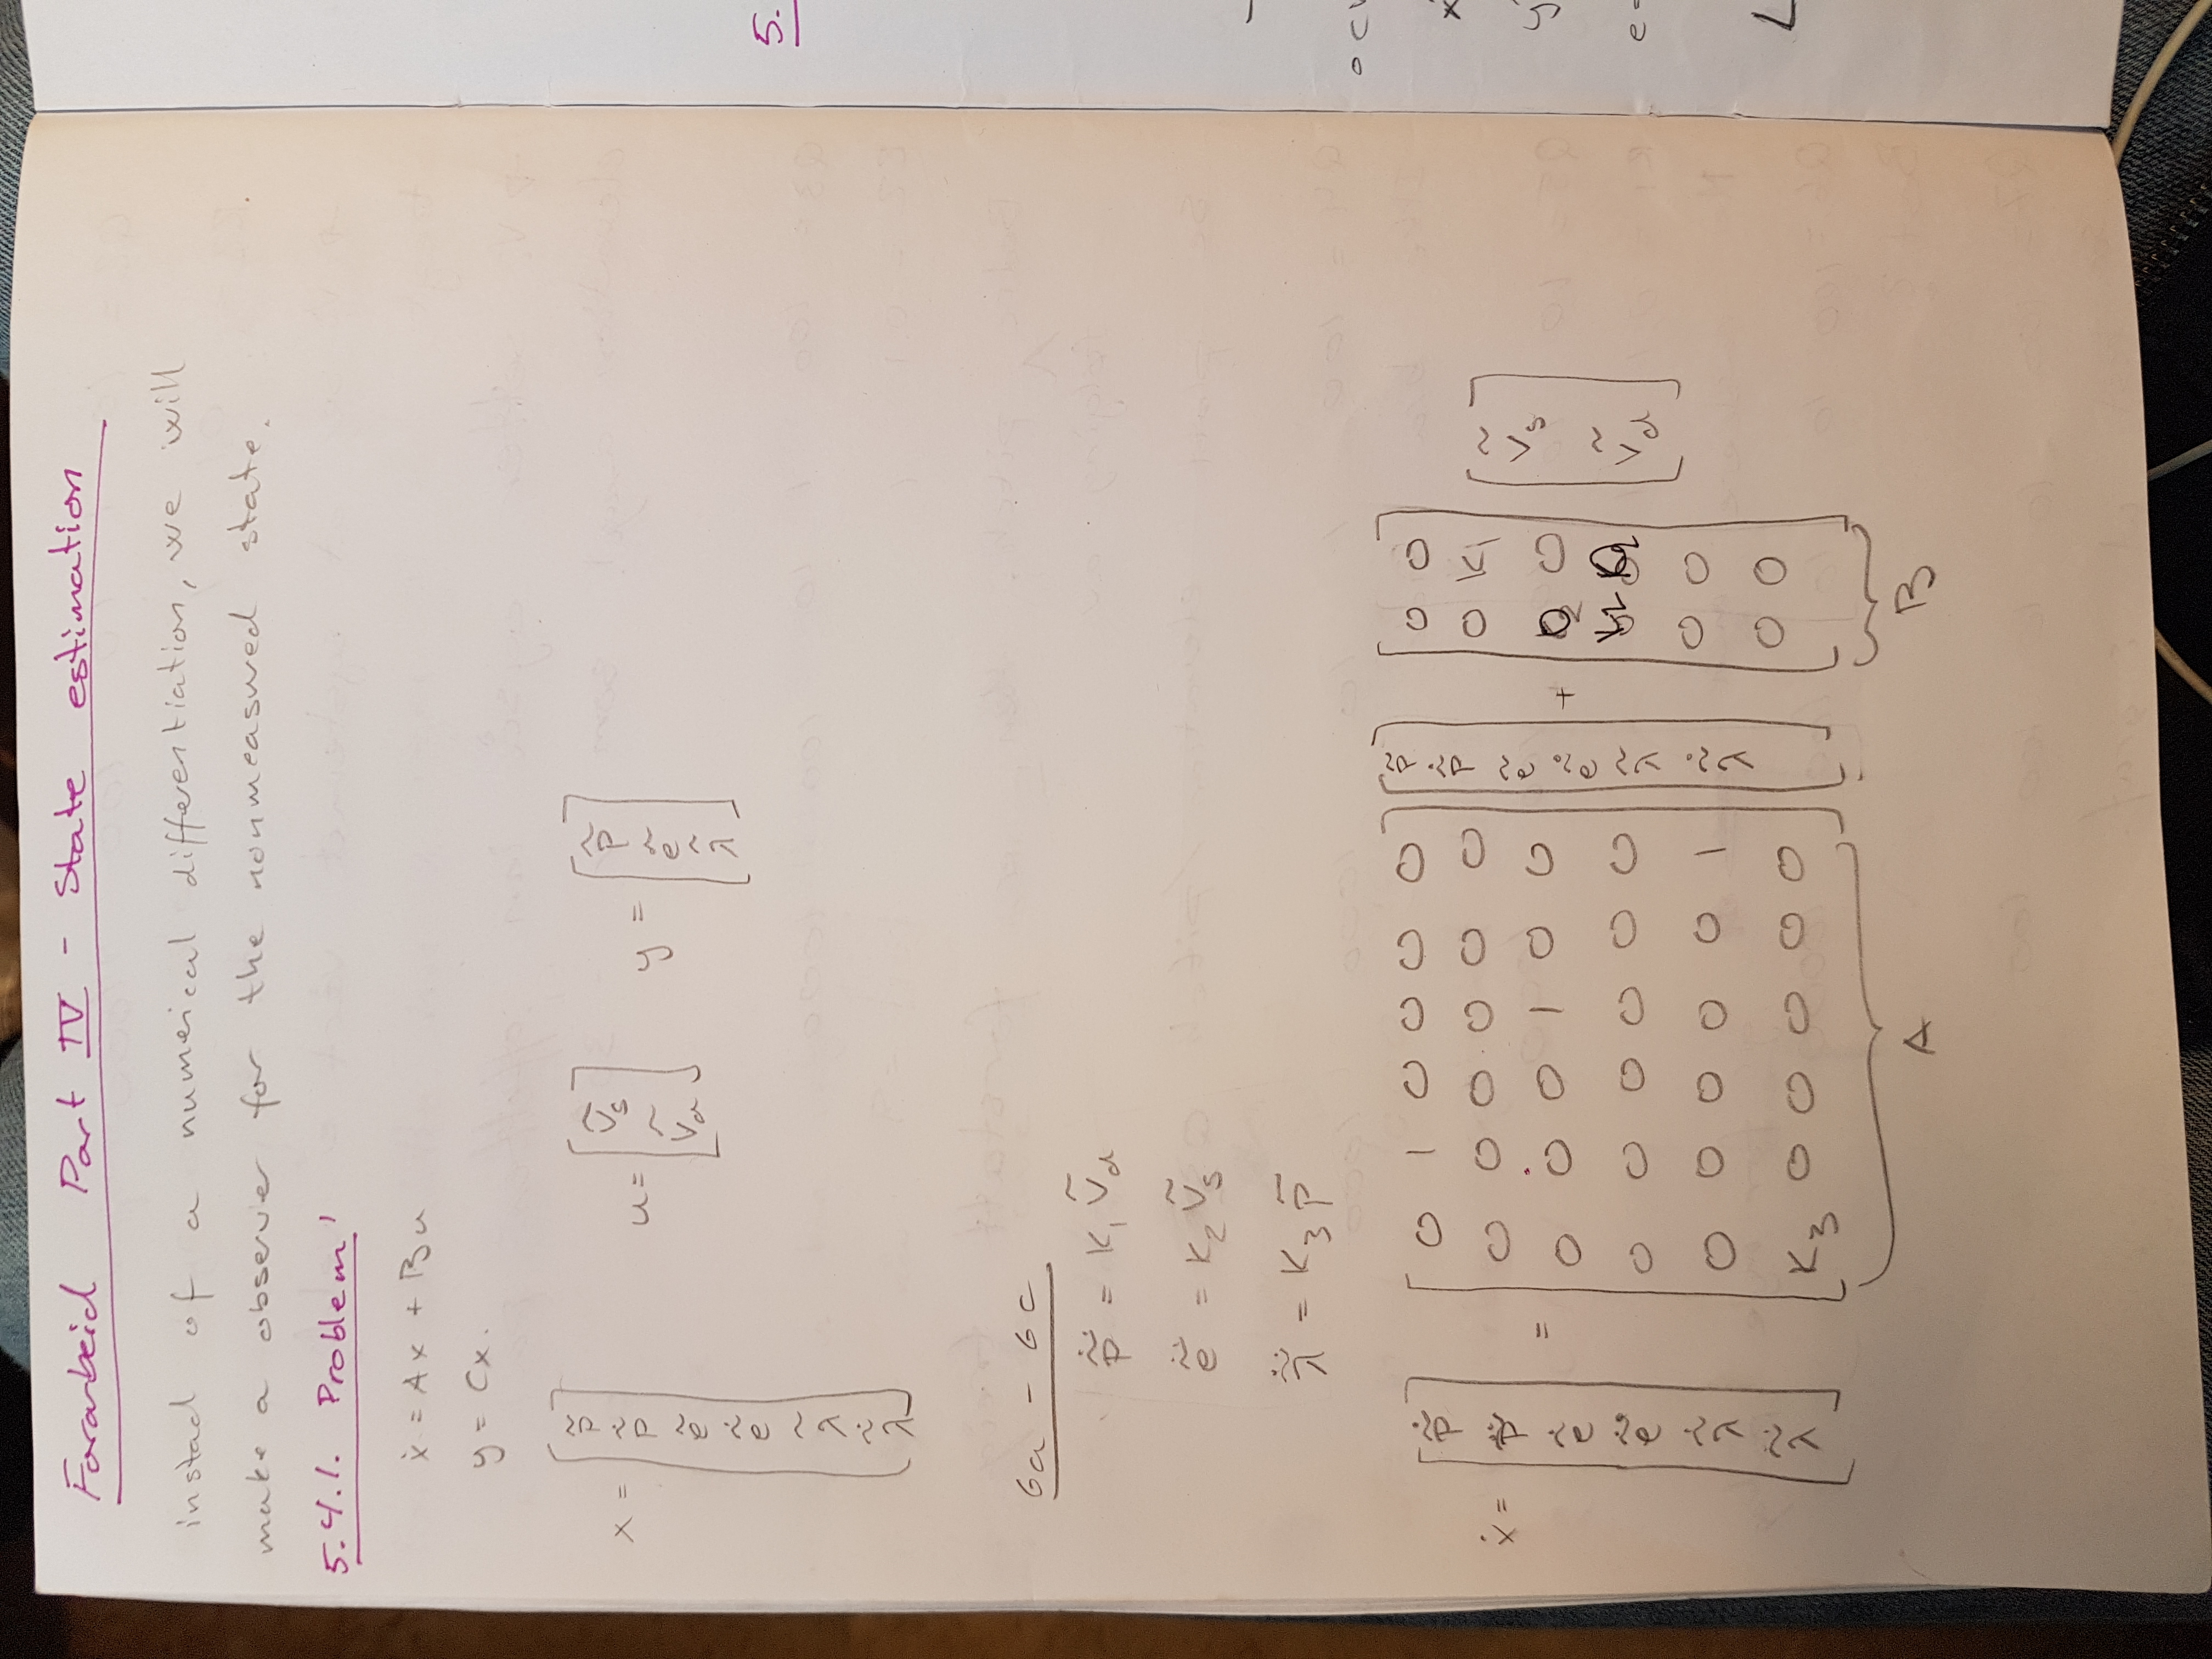 Forarbeid Part IV - State estimation
instad of a numerical differentiation, we will
make a observer for the nonmeasured state.
5.4.1. Problem 1
ẋ = Ax + Bu
y = Cx.
x = [p̃ p̃̇ ẽ ẽ̇ λ̃ λ̃̇] u = [Ṽs Ṽd] y = [p̃ ẽ λ̃]
6a - 6c
p̃̈ = K1 Ṽd
ẽ̈ = K2 Ṽs
λ̃̈ = K3 p̃
ẋ = [p̃̇ p̃̈ ẽ̇ ẽ̈ λ̃̇ λ̃̈] = [0 1 0 0 0 0
0 0 0 0 0 0
0 0 0 1 0 0
0 0 0 0 0 0
0 0 0 0 0 1
K3 0 0 0 0 0] [p̃ p̃̇ ẽ ẽ̇ λ̃ λ̃̇] + [0 0
0 K1
0 0
K2 0
0 0
0 0] [Ṽs Ṽd]
A B
5.
x
y
e
L